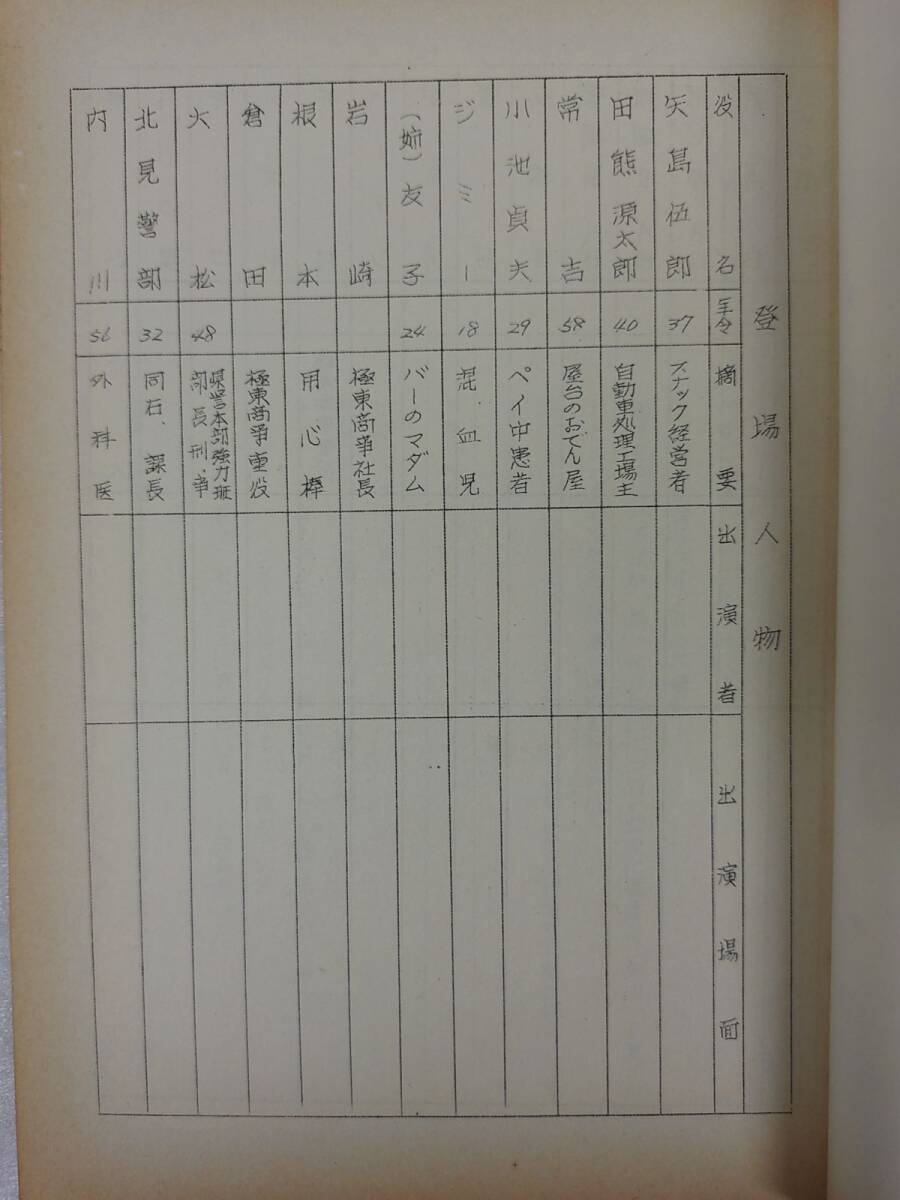 登場人物
役名 年令 摘要 出演者 出演場面
矢島伍郎 37 スナック経営者
田熊源太郎 40 自動車処理工場主
常吉 58 屋台のおでん屋
小池貞夫 29 ペイ中患者
ジミー 18 混血児
(姉)友子 24 バーのマダム
岩崎 極東商事社長
根本 用心棒
倉田 極東商事重役
大松 48 県警本部強力班
部長刑事
北見警部 32 同右、課長
内川 56 外科医